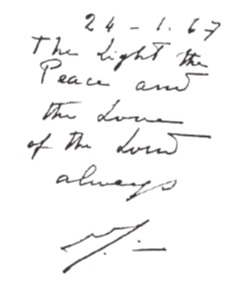 24-1.67
The Light the
Peace and
the Love
of the Lord
always